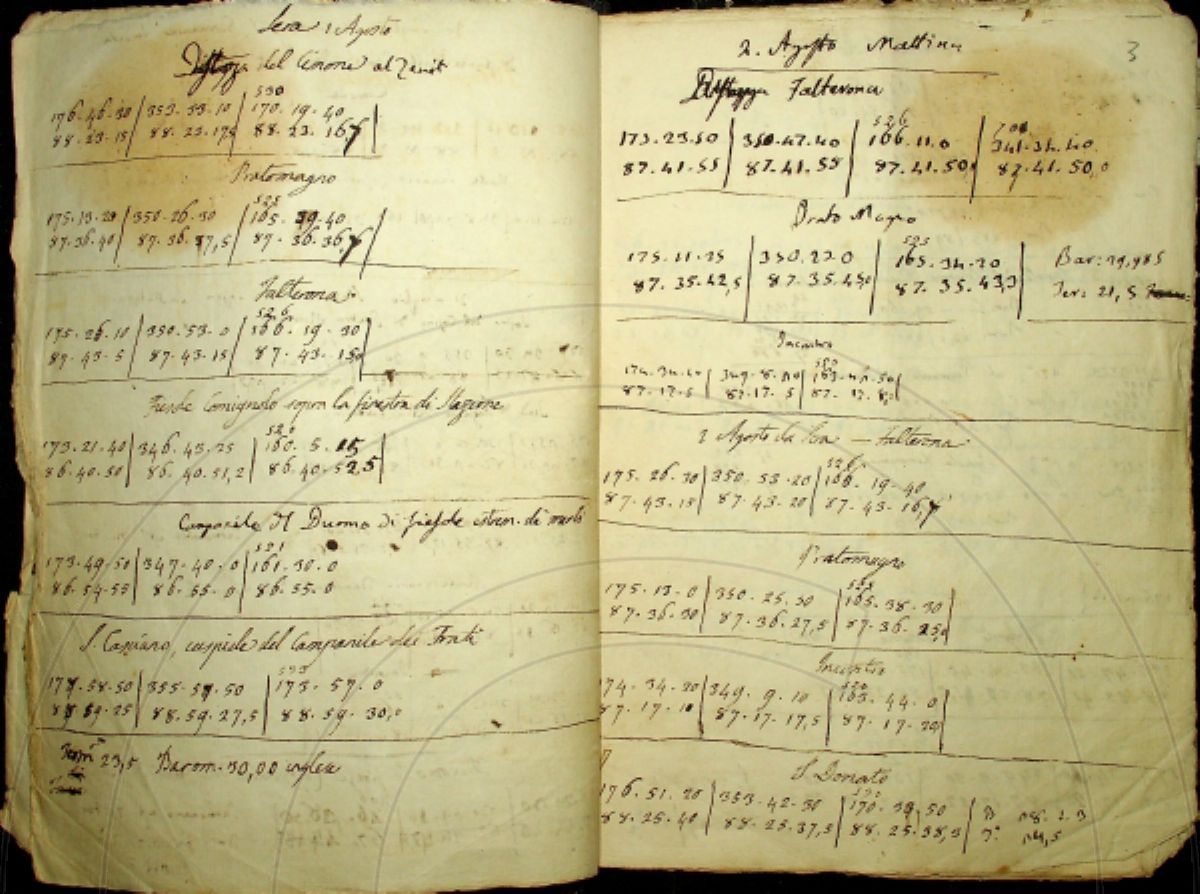 Sera 1 Agosto
del Cimone al Zenit
530
176.46.30 | 353.33.10 | 170.19.40
88.23.15 | 88.23.17 | 88.23.16,7
Pratomagno
525
175.13.20 | 350.26.30 | 165.39.40
87.36.40 | 87.36.37,5 | 87.36.36,7
Falterona
526
175.26.10 | 350.53.0 | 166.19.30
87.43.5 | 87.43.15 | 87.43.15,0
Comignolo sopra la finestra di
520
173.21.40 | 346.43.25 | 160.5.15
86.40.50 | 86.40.51,2 | 86.40.52,5
Campanile Duomo di Fiesole
521
173.49.50 | 347.40.0 | 161.30.0
86.54.55 | 86.55.0 | 86.55.0
S. Casciano, cuspide del Campanile dei Frati
533
177.58.50 | 355.57.50 | 173.57.0
88.59.25 | 88.59.27,5 | 88.59.30,0
23,5 Barom. 30,00 inglese
3
2. Agosto Mattina
Falterona
526 700
173.23.50 | 350.47.40 | 166.11.0 | 341.34.40
87.41.55 | 87.41.55 | 87.41.50, | 87.41.50,0
Prato Magno
525
175.11.25 | 350.22.0 | 165.34.20 | Bar: 29,985
87.35.42,5 | 87.35.45,0 | 87.35.43,3 | Ter: 21,5
Incontro
174.34.10 | 349.8.
87.17.5 | 87.17.5 | 87.17.
2 Agosto da Sera — Falterona
526
175.26.30 | 350.53.20 | 166.19.40
87.43.15 | 87.43.20 | 87.43.16,7
Pratomagno
525
175.13.0 | 350.25.30 | 165.38.30
87.36.30 | 87.36.27,5 | 87.36.25,0
Incontro
174.34.20 | 349.9.10 | 163.44.0
87.17.10 | 87.17.17,5 | 87.17.20
S. Donato
530
176.51.20 | 353.42.30 | 170.39.50
88.25.40 | 88.25.37,5 | 88.25.38,3